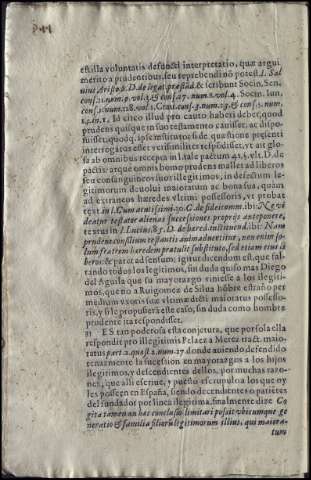 est illa voluntatis defuncti interpretatio, quæ argui
merito a prudentibus, seu reprehendi nō potest, l. Sal
uius Aristo, ff. D. de legat. præstād. & scribunt Socin. Sen.
cons. num. vol. 3. & cons. 47. num. 2. vol. 4. Socin. Iun.
Id circo illud pro cauto haberi debet, quod
prudens quisque in suo testamento cauisset, ac dispo-
suisset, quodq. ipse institutor si de quæstione præsenti
interrogatus esset verisimiliter respōdisset, vt ait glo
sa ab omnibus recepta in l. tale pactum 41. §. vlt. D. de
pactis: atque omnis homo prudens mallet ad liberos
seu consanguineos suos illegitimos, in defectum le-
gitimorum deuolui maioratum ac bona sua, quàm
ad extraneos hæredes vltimi possessoris, vt probat
text. in l. Cum acutissimi 30. C. de fideicomm. ibi: Ne vi
deatur testator alienas successiones propriis anteponere,
textus in l. Lucius 85. D. de hæred. instituend. ibi: Nam
prudens consilium testantis animaduertitur, non enim so-
lum fratrem hæredem prætulit substituto, sed etiam eius li
beris: & parar ad sensum: igitur dicendum est, que fal-
tando todos los legitimos, sin duda quiso mas Diego
del Aguila que su mayorazgo viniesse a los ilegiti-
mos, que no a Ruigomez de Silua hōbre estraño por
medium vxoris suæ vltimæ dicti maioratus possesso-
ris, y si le propusiera este caso, sin duda como hombre
prudente ita respondisset.
31 ES tan poderosa esta conjetura, que por sola ella
respondit pro illegitimis Pelaez a Meres tract. maio-
ratus part. 2. quæst. 2. num. 27. donde auiendo defendido
tenazmente la sucession en mayorazgos a los hijos
illegitimos, y descendientes dellos, por muchas razo-
nes, que alli escriue, y puesto escrupulo a los que oy
les posseen en España, siendo decendientes o parietes
del fundador por linea ilegitima, finalmente dize Co
gita tamen an hæc conclusio limitari possit vbicumque ge
neratio & familia filiorū legitimorum illius, qui maiora-
tum